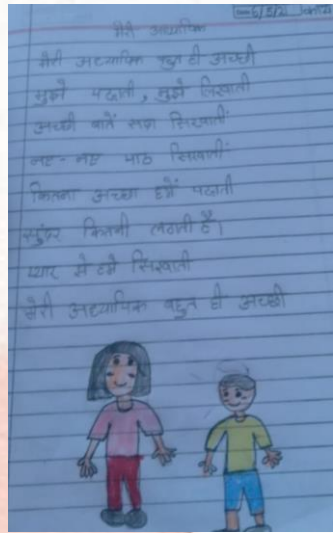 मेरी अध्यापिक
मेरी अध्यापिक बहुत ही अच्छी
मुझे पढाती, मुझे लिखाती
अच्छी बातें सदा सिखातीं
नए-नए पाठ सिखातीं
कितना अच्छा हमें पढाती
सुंदर कितनी लगती है।
प्यार से हमे सिखाती
मेरी अध्यापिक बहुत ही अच्छी